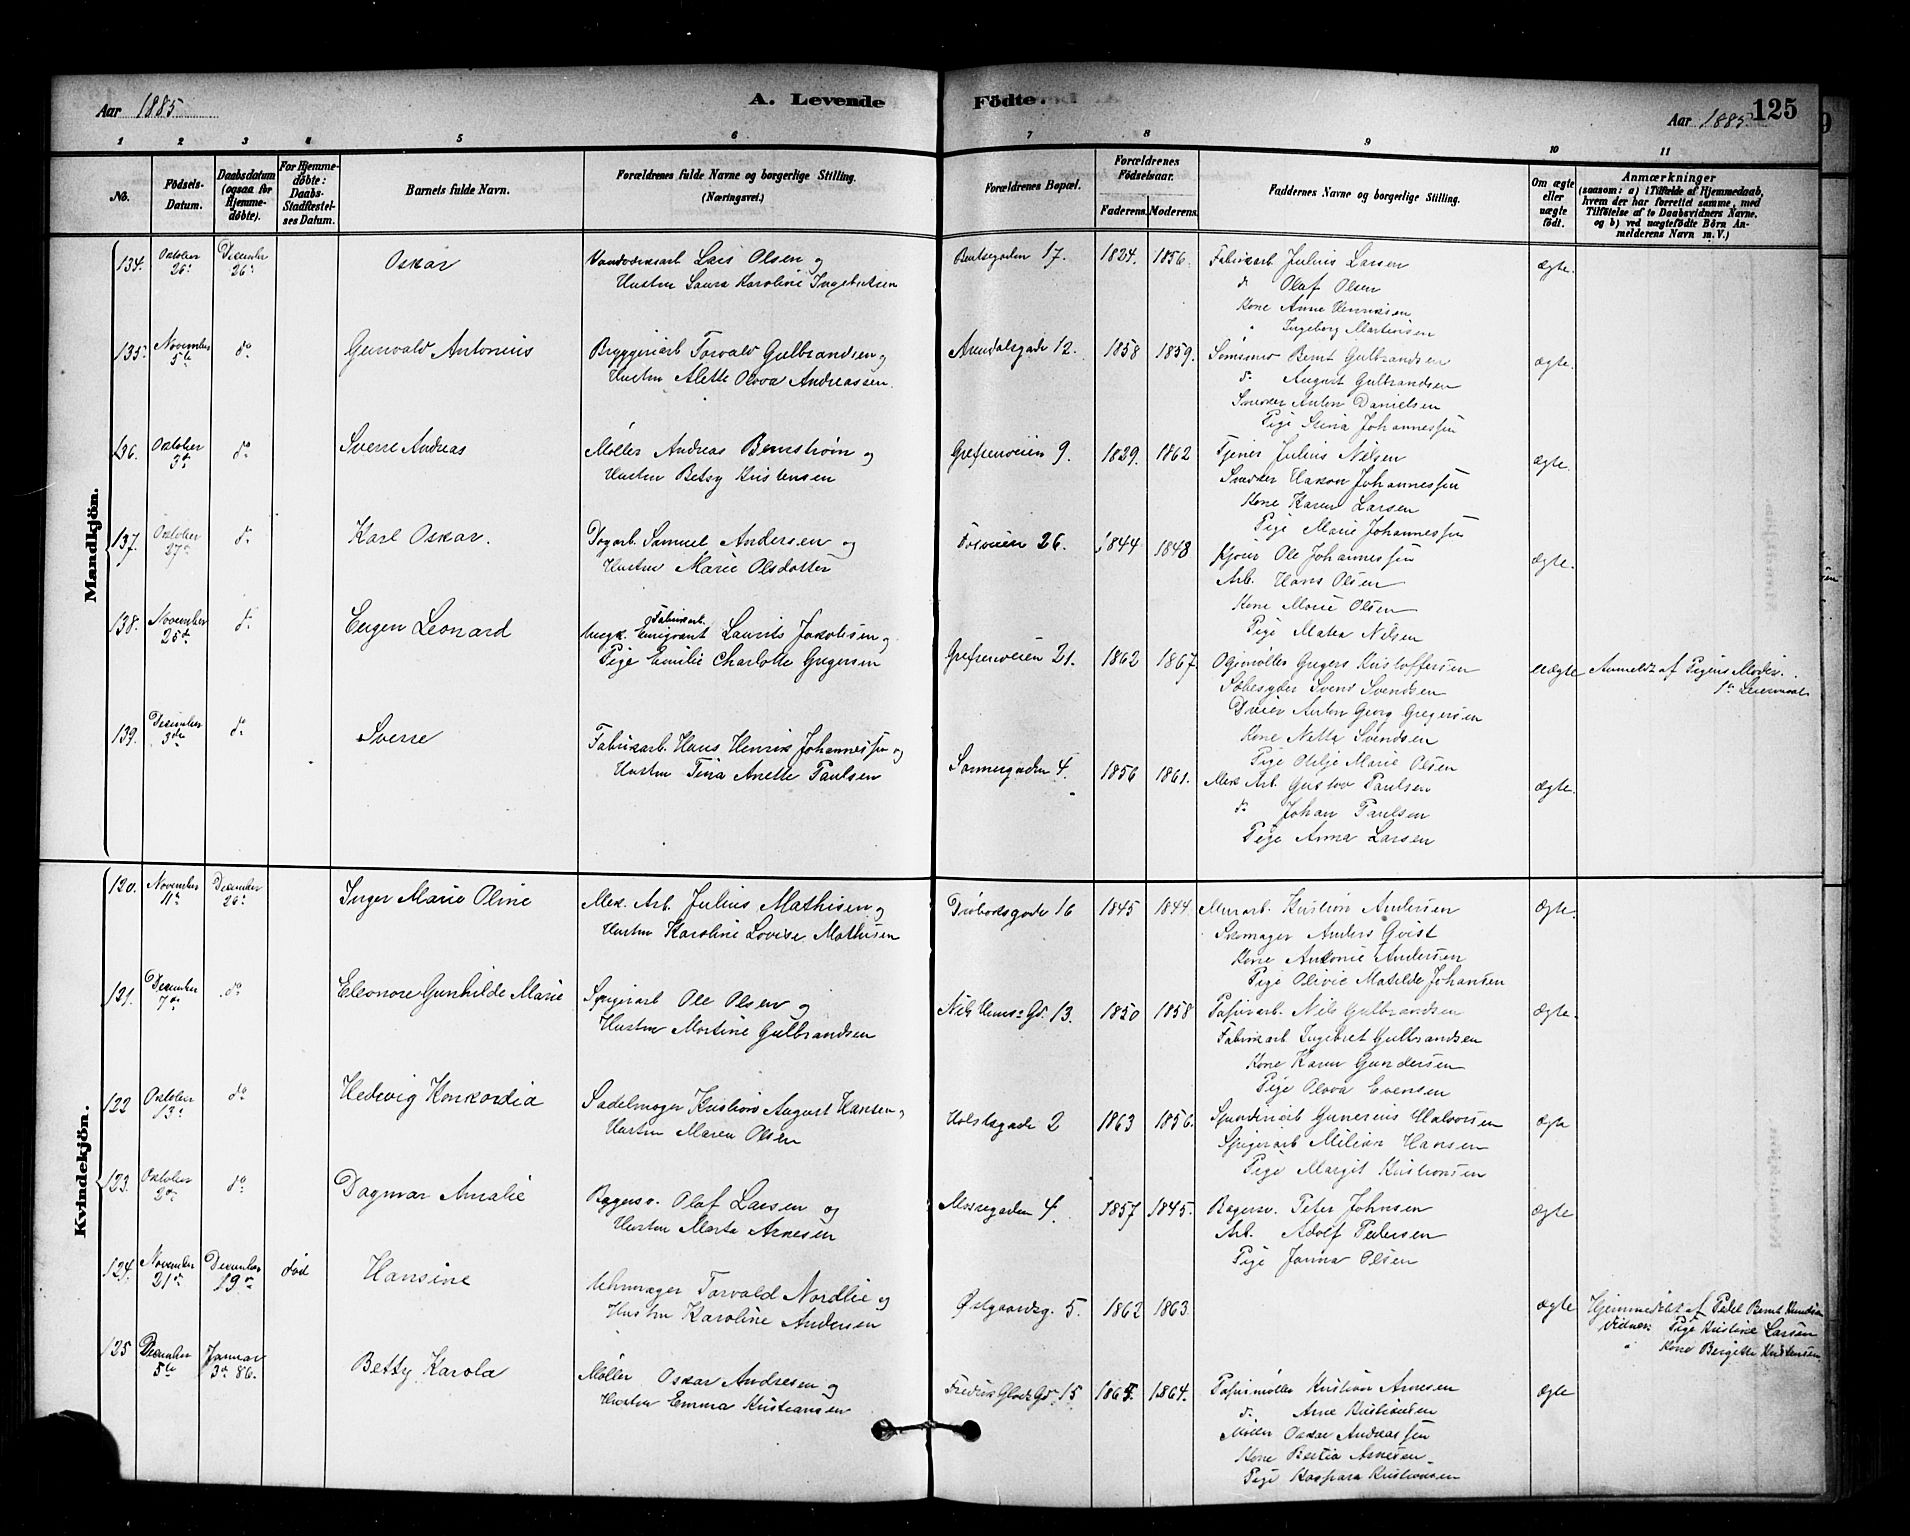 Aar 1885
A. Levende
Födte.
Aar 1885
125
1 2 3 4 5 6 7 8 9 10 11
No.
Födsels-
Datum.
Daabsdatum
(ogsaa för
Hjemme-
döbte).
For Hjemme-
döbte:
Daabs-
Stadfæstel-
ses Datum.
Barnets fulde Navn.
Forældrenes fulde Navne og borgerlige Stilling.
(Næringsvei.)
Forældrenes Bopæl.
Forældrenes
Födselsaar.
Faderens. Moderens.
Faddernes Navne og borgerlige Stilling.
Om ægte
eller
uægte
födt.
Anmærkninger
(saasom: a) i Tilfælde af Hjemmedaab,
hvem der har forrettet samme, med
Tilföielse af to Daabsvidners Navne,
og b) ved uægtefödte Börn An-
melderens Navn m. V.)
Mandkjön.
134. Oktober 26de December 26de Oskar Lars Olsen og 17. 1824. 1856. Fabrikarb. Julius Larsen ægte.
Hustru Laura Karoline Ingebretsen
do Olaf Olsen
Kone Anne Henriksen
" Ingeborg Martinsen
135. November 5te do Gunvald Antonius Bryggeriarb Torvald Gulbrandsen og Arendalsgade 12. 1858 1859. Bernt Gulbrandsen ægte.
Hustru Alette Olova Andreassen.
do August Gulbrandsen
Snedker Anton Danielsen
Pige Stina Johannessen
136. Oktober 3de do Sverre Andreas Møller Andreas Bernstrøm og Grefsenveien 9. 1829. 1862 Tjener Julius Nilsen ægte.
Hustru Betsy Kristensen
Snedker Hakon Johannessen
Kone Karen Larsen
Pige Marie Johannessen
137. Oktober 27de do Karl Oskar. Samuel Andersen og 26. 1844 1848 Ole Johannessen ægte.
Hustru Marie Olsdatter
Arb. Hans Olsen
Kone Marie Olsen
Pige Matea Nilsen
138. November 25de do Eugen Leonard Fabrikarb.
Ungk. Emigrant Laurits Jakobsen og Grefsenveien 21. 1862 1867. Gregers Kristoffersen uægte Anmeldt af Pigens Moder.
Pige Emilie Charlotte Gregersen
1ste Leiermaal
Svend Svendsen
Dreier Anton Georg Gregersen
Kone Netta Svendsen
Pige Otilje Marie Olsen
139. December 3die do Sverre Fabrikarb. Hans Henrik Johannessen og Sannergaden 4. 1856 1861. Mek Arb. Gustav Paulsen ægte.
Hustru Tina Anette Paulsen
do Johan Paulsen
Pige Anna Larsen
Kvindekjön.
120. November 11te December 26de Inger Marie Oline Mek. Arb. Julius Mathisen og Drøbaksgade 16 1845 1844. Murarb. Kristian Andersen ægte.
Hustru Karoline Lovise Mathisen
Skomager Anders Qvist
Kone Antonie Andersen
Pige Olivie Matilde Johansen
121. December 7de do Eleonore Gunhilde Marie Spigerarb Ole Olsen og 13. 1850 1858 Papirarb. Nils Gulbrandsen ægte.
Hustru Martine Gulbrandsen
Fabrikarb Ingebret Gulbrandsen
Kone Karen Gundersen
Pige Olova Evensen
122 Oktober 13de do Hedevig Konkordia Sadelmager Kristian August Hansen og Holstsgade 2 1863 1856. Gunerius Halvorsen ægte
Hustru Maren Olsen
Spigerarb Milian Hansen
Pige Margit Kristiansen
123. Oktober 2den do Dagmar Amalie Bagersv. Olaf Larsen og Mossegaden 4. 1857 1845. Bagersv. Peter Johnsen ægte
Hustru Marta Arnesen
Arb. Adolf Pedersen
Pige Janna Olsen
124. November 21de December 19de død Hansine Uhrmager Torvald Nordlie og Østgaardsg. 5. 1862 1863. ægte Hjemmedøbt af Bernt
Hustru Karoline Andersen
Vidner: Pige Kristine Larsen
" Kone Bergette Kristensen
125 December 5te Januar 3de 86. Betty Karola Møller Oskar Andresen og 15 1865. 1864. Papirmøller Kristian Arnesen ægte
Hustru Emma Kristiansen
do Arne Kristiansen
Møller Oskar Andreassen
Kone Bertia Arnesen
Pige Kaspara Kristiansen